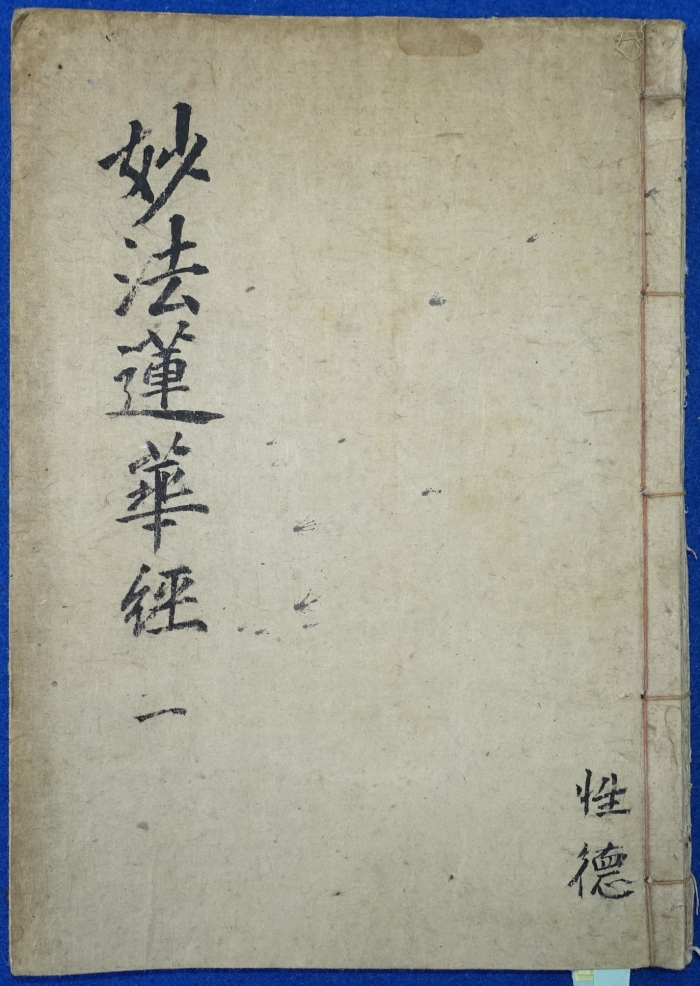 妙法蓮華經 一
性德